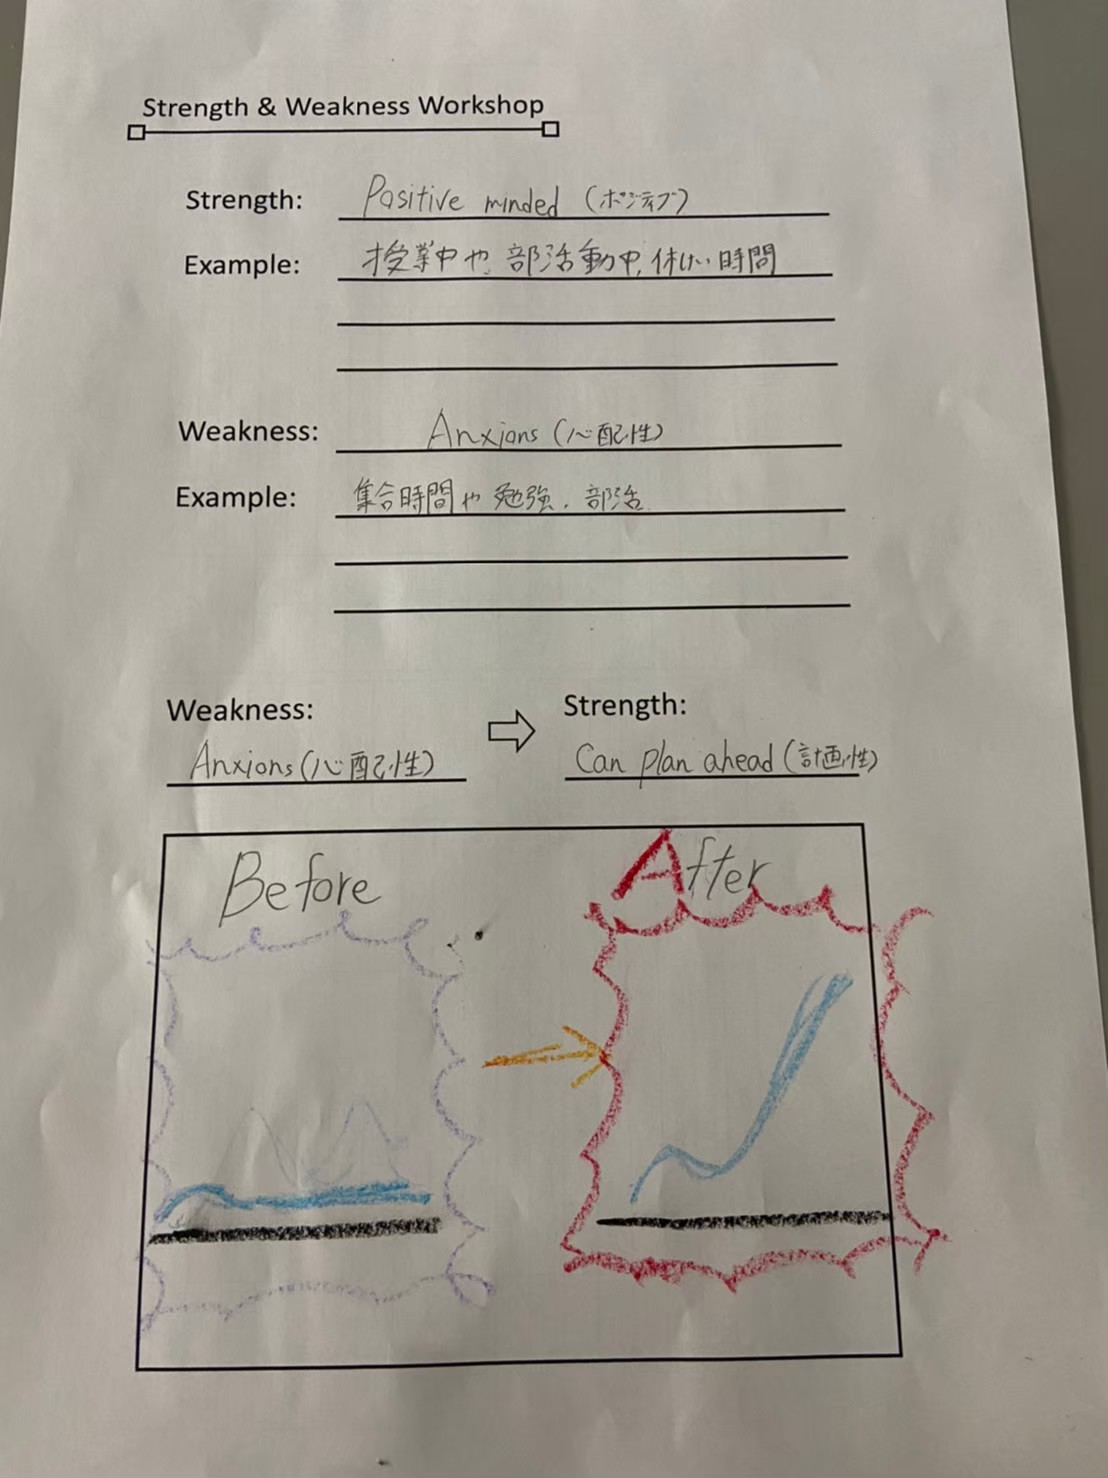 Strength & Weakness Workshop
Strength: Positive minded (ポジティブ)
Example: 授業中や、部活動中、休けい時間
Weakness: Anxions (心配性)
Example: 集合時間や勉強、部活
Weakness: Strength:
Anxions (心配性) Can plan ahead (計画性)
Before After